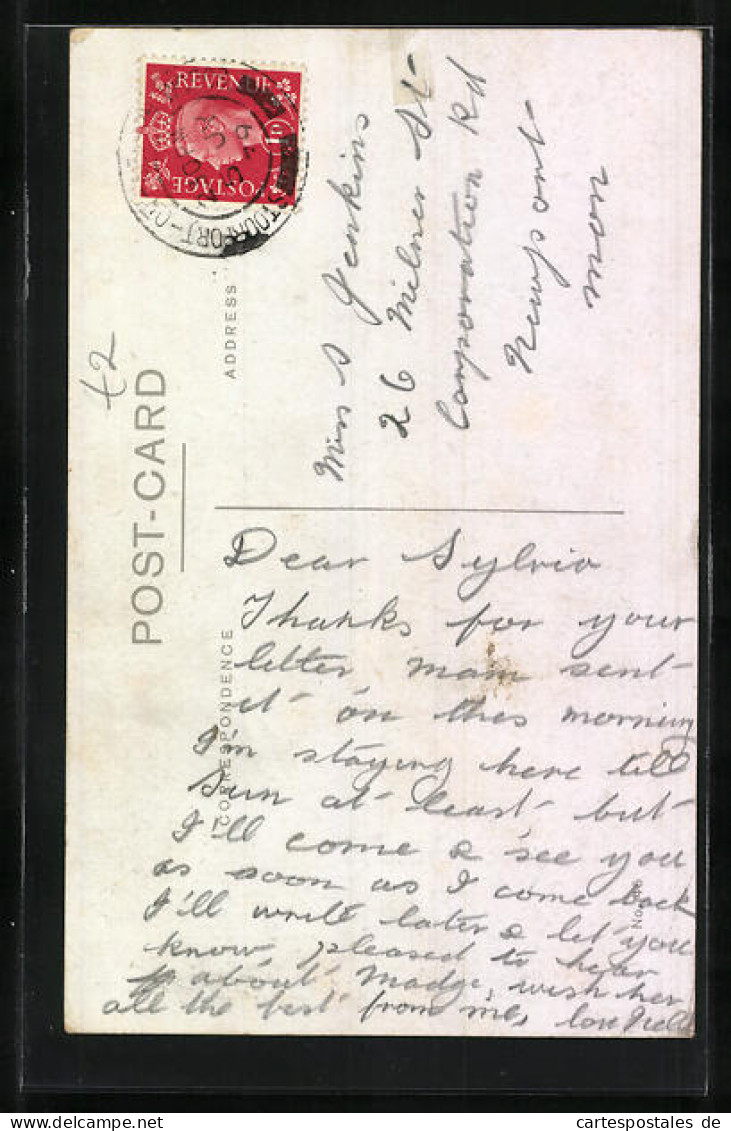 REVENUE
1D
POSTAGE
STOURPORT-O
42
POST-CARD
ADDRESS
Miss S Jenkins
26 Milner St
Corporation Rd
Newport
Mon
CORRESPONDENCE
Dear Sylvia
Thanks for your
letter, mam sent
it on this morning
I'm staying here till
Sun at least but
I'll come & see you
as soon as I come back
I'll write later & let you
know, pleased to hear
about Madge, wish her
all the best from me, love
No
© cartespostales.de
www.cartespostales.de